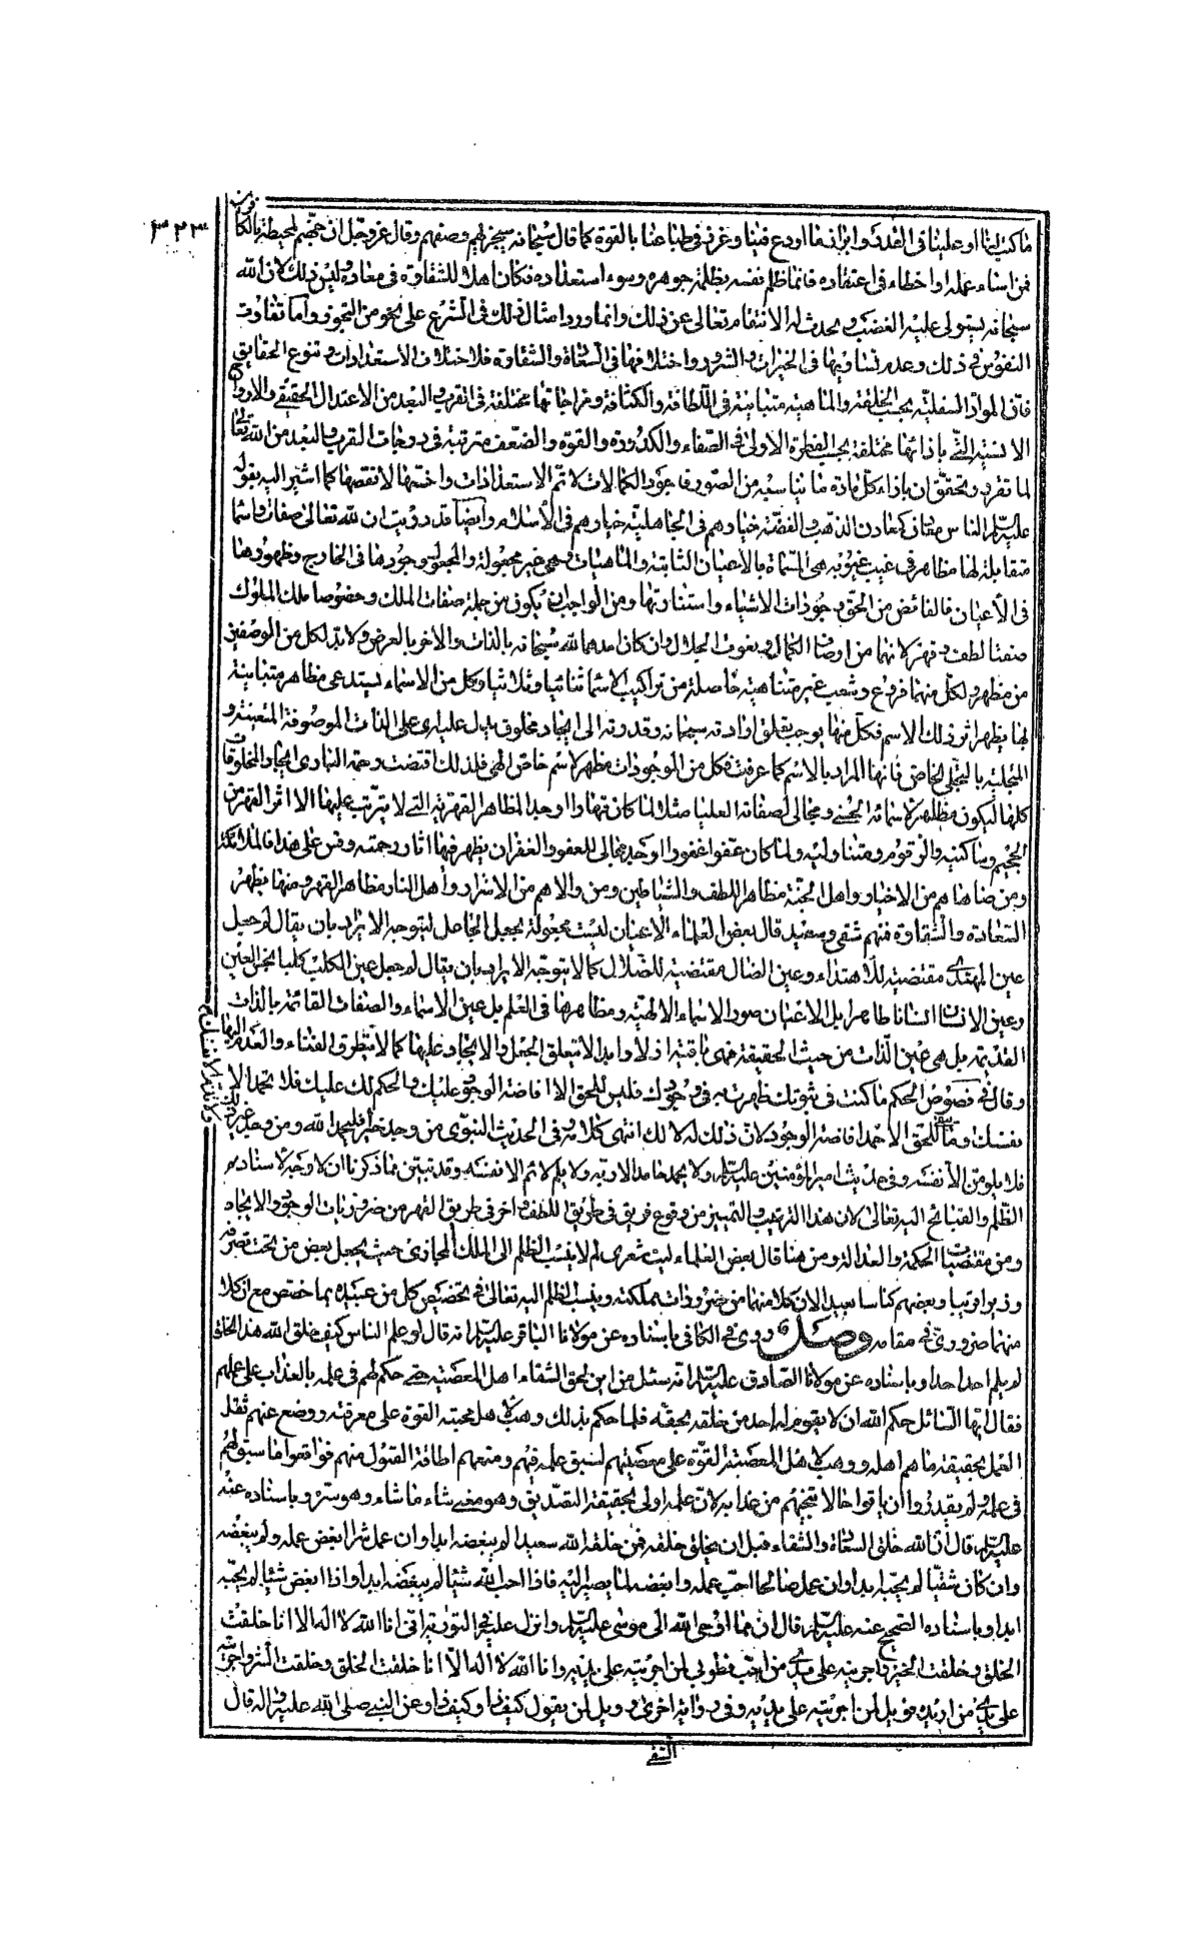 ٣٢٣
ما كتب لنا او علينا فى القدر و ابراز ما اودع فينا و غرز فى طباعنا بالقوة كما قال سبحانه سيجزيهم وصفهم وقال عز وجل ان جهنم لمحيطة بالكافرين
فمن اساء عمله او اخطاء فى اعتقاده فانما ظلم نفسه بظلمة جوهره وسوء استعداده فكان اهلا للشقاوة فى معاده وليس ذلك لان الله
سبحانه يستولى عليه الغضب و يحدث له الانتقام تعالى عن ذلك وانما ورد امثال ذلك فى الشرع على نحو من التجوز واما تفاوت
النفوس فى ذلك وعدم تساويها فى الخيرات و الشرور و اختلافها فى السعادة والشقاوة فلاختلاف الاستعدادات و تنوع الحقايق
فان المواد السفلية بحسب الخلقة والماهية متباينة فى اللطافة والكثافة ومزاجاتها مختلفة فى القرب و البعد من الاعتدال الحقيقى والارواح
الانسية التى بازائها مختلفة بحسب الفطرة الاولى فى الصفاء والكدورة والقوة والضعف مترتبة فى درجات القرب والبعد من الله تعالى
لما تقرر و تحقق ان بازاء كل مادة ما يناسبه من الصور فاجود الكمالات لاتم الاستعدادات واخسها لانقصها كما اشير اليه بقوله
عليه السلم الناس معادن كمعادن الذهب والفضة خيارهم فى الجاهلية خيارهم فى الاسلام وايضا قد دريت ان لله تعالى صفات واسماء
متقابلة لها مظاهر فى غيب غيوبه هى المسماة بالاعيان الثابتة والماهيات وهى غير مجعولة والمجعول وجودها فى الخارج وظهورها
فى الاعيان فالفائض من الحق وجودات الاشياء واستنارتها ومن الواجب ان يكون من جملة صفات الملك وخصوصا ملك الملوك
صفتا لطف و قهر لانهما من اوصاف الكمال و نعوت الجلال وان كان احدهما لله سبحانه بالذات والاخر بالعرض ولابد لكل من الوصفين
من مظهر ولكل منهما فروع و شعب غير متناهية حاصلة من تراكيب الاسماء ثنائيا وثلاثيا وكل من الاسماء يستدعى مظاهر متباينة
لها يظهر اثر ذلك الاسم فكل منها يوجب تعلق ارادته سبحانه وقدرته الى ايجاد مخلوق يدل عليه اى على الذات الموصوفة المتعينة و
المتجلية بالتجلى الخاص فانها المراد بالاسم كما عرفت فكل من الموجودات مظهر لاسم خاص الهى فلذلك اقتضت رحمة البارى ايجاد المخلوقات
كلها ليكون مظاهر لاسمائه الحسنى و مجالى لصفاته العليا مثلا لما كان قهارا اوجد المظاهر القهرية التى لا يترتب عليها الا اثر القهر من
الجحيم وساكنيه والزقوم ومتناوليه ولما كان عفوا غفورا اوجد مجالى للعفو والغفران يظهر فيها اثار رحمته وقس على هذا فالملائكة
ومن ضاهاهم من الاخيار و اهل الجنة مظاهر اللطف والشياطين ومن والاهم من الاشرار و اهل النار مظاهر القهر ومنها يظهر
السعادة والشقاوة فمنهم شقى وسعيد قال بعض العلماء الاعيان ليست مجعولة بجعل الجاعل ليتوجه الايراد بان يقال لم جعل
عين المهتدى مقتضية للاهتداء وعين الضال مقتضية للضلال كما لا يتوجه الايراد بان يقال لم جعل عين الكلب كلبا نجس العين
وعين الانسان انسانا طاهرا بل الاعيان صور الاسماء الالهية و مظاهرها فى العلم بل عين الاسماء والصفات القائمة بالذات
القديمة بل هى عين الذات من حيث الحقيقة فهى باقية ازلا وابدا لا يتعلق الجعل والايجاد عليها كما لا يتطرق الفناء والعدم اليها
وقال فى فصوص الحكم ما كنت فى ثبوتك ظهرت به فى وجودك فليس للحق الا افاضة الوجود عليك والحكم لك عليك فلا تحمد الا
نفسك وما يبقى للحق الا حمد افاضة الوجود لان ذلك له لا لك انتهى كلامه و فى الحديث النبوى من وجد خيرا فليحمد الله ومن وجد غير ذلك
فلا يلومن الا نفسه وفى حديث امير المؤمنين عليه السلم ولا يحمد حامد الا ربه ولا يلم لائم الا نفسه وقد تبين مما ذكرنا ان لا وجه لاسناد
الظلم والقبائح اليه تعالى لان هذا الترتيب والتمييز من وقوع فريق فى طريق اللطف واخر فى طريق القهر من ضروريات الوجود والايجاد
ومن مقتضيات الحكمة والعدالة ومن هنا قال بعض العلماء ليت شعرى لم لا ينسب الظلم الى الملك المجازى حيث يجعل بعض من تحت تصرفه
وزيرا قريبا وبعضهم كناسا بعيدا لان كلا منهما من ضرورات مملكته وينسب الظلم اليه تعالى فى تخصيص كل من عبيده بما خصص مع ان كلا
منهما ضرورى فى مقامه وصل روى فى الكافى باسناده عن مولانا الباقر عليه السلم انه قال لو علم الناس كيف خلق الله هذا الخلق
لم يلم احد احدا وباسناده عن مولانا الصادق عليه السلم انه سئل من اين لحق الشقاء اهل المعصية حتى حكم لهم فى علمه بالعذاب على عملهم
فقال ايها السائل حكم الله ان لا يقوم له احد من خلقه بحقه فلما حكم بذلك وهب لاهل محبته القوة على معرفته ووضع عنهم ثقل
العمل بحقيقة ما هم اهله و وهب لاهل المعصية القوة على معصيتهم لسبق علمه فيهم ومنعهم اطاقة القبول منهم فواقعوا ما سبق لهم
فى علمه ولم يقدروا ان ياتوا حالا تنجيهم من عذابه لان علمه اولى بحقيقة التصديق وهو معنى شاء ما شاء وهو سره وباسناده عنه
عليه السلم قال ان الله خلق السعادة والشقاء قبل ان يخلق خلقه فمن خلقه الله سعيدا لم يبغضه ابدا وان عمل شرا ابغض عمله ولم يبغضه
وان كان شقيا لم يحبه ابدا وان عمل صالحا احب عمله وابغضه لما يصير اليه فاذا احب الله شيئا لم يبغضه ابدا واذا ابغض شيئا لم يحبه
ابدا وباسناده الصحيح عنه عليه السلم قال ان مما اوحى الله الى موسى عليه السلم وانزل عليه فى التورية انى انا الله لا اله الا انا خلقت
الخلق و خلقت الخير و اجريته على يدى من احب فطوبى لمن اجريته على يديه وانا الله لا اله الا انا خلقت الخلق وخلقت الشر واجريته
على يدى من اريده فويل لمن اجريته على يديه وفى رواية اخرى و ويل لمن يقول كيف ذا و كيف ذا وعن النبى صلى الله عليه واله قال
الشقى